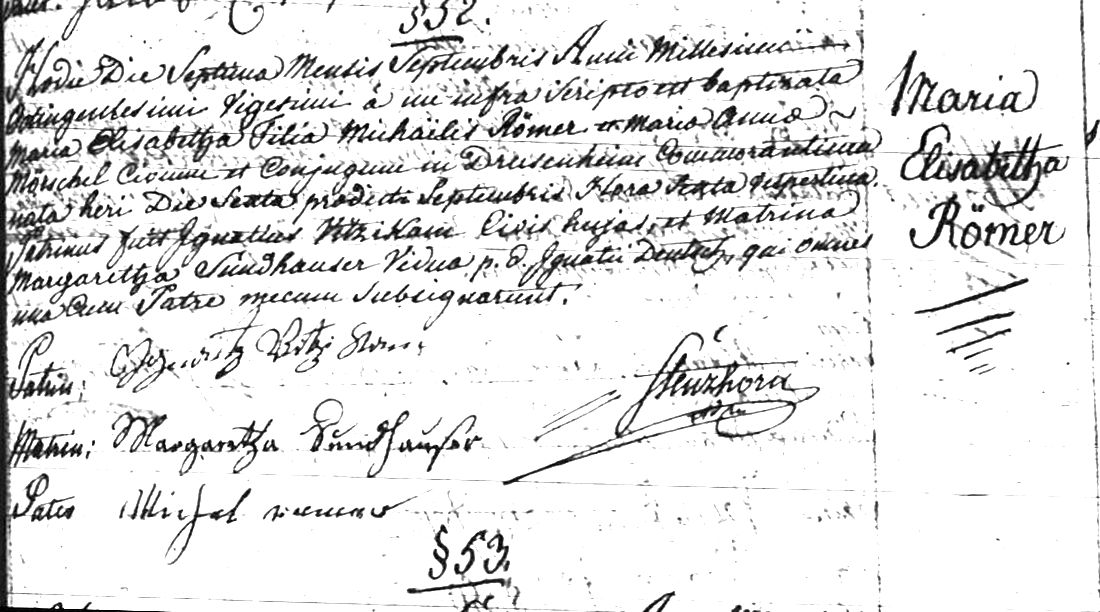 §52.
Hodie Die Septima Mensis Septembris Anni Millesimi
Octingentesimi Vigesimi à me infra Scripto est baptizata
Maria Elisabetha Filia Michaëlis Römer et Maria Anna
Mörschel Civium et Conjugum in Drusenheim Commorantium
nata heri Die Sexta prædicti Septembris Hora Sexta Vespertina.
Patrinus fuit Ignatius Vitzikam Civis hujas, et Matrina
Margaretha Sundhauser Vidua p. d. Ignatii Deutsch, qui omnes
una Cum Patre mecum Subsignarunt.
Patrin:
Matrin: Margaretha Sundhauser
Pater Michel
Stenzhorn
§53.
Maria
Elisabetha
Römer